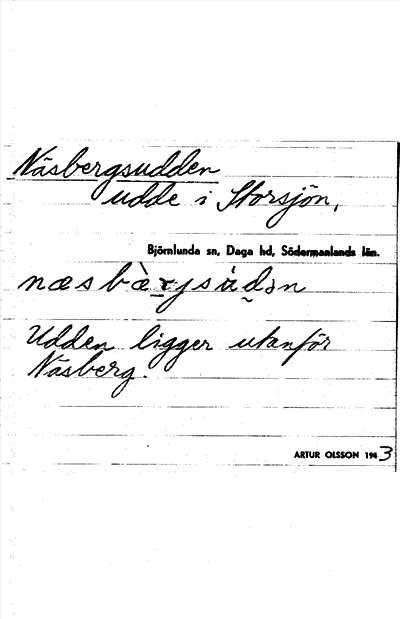 Näsbergsudden
udde i Storsjön,
Björnlunda sn, Daga hd, Södermanlands län.
Udden ligger utanför
Näsberg.
ARTUR OLSSON 1943